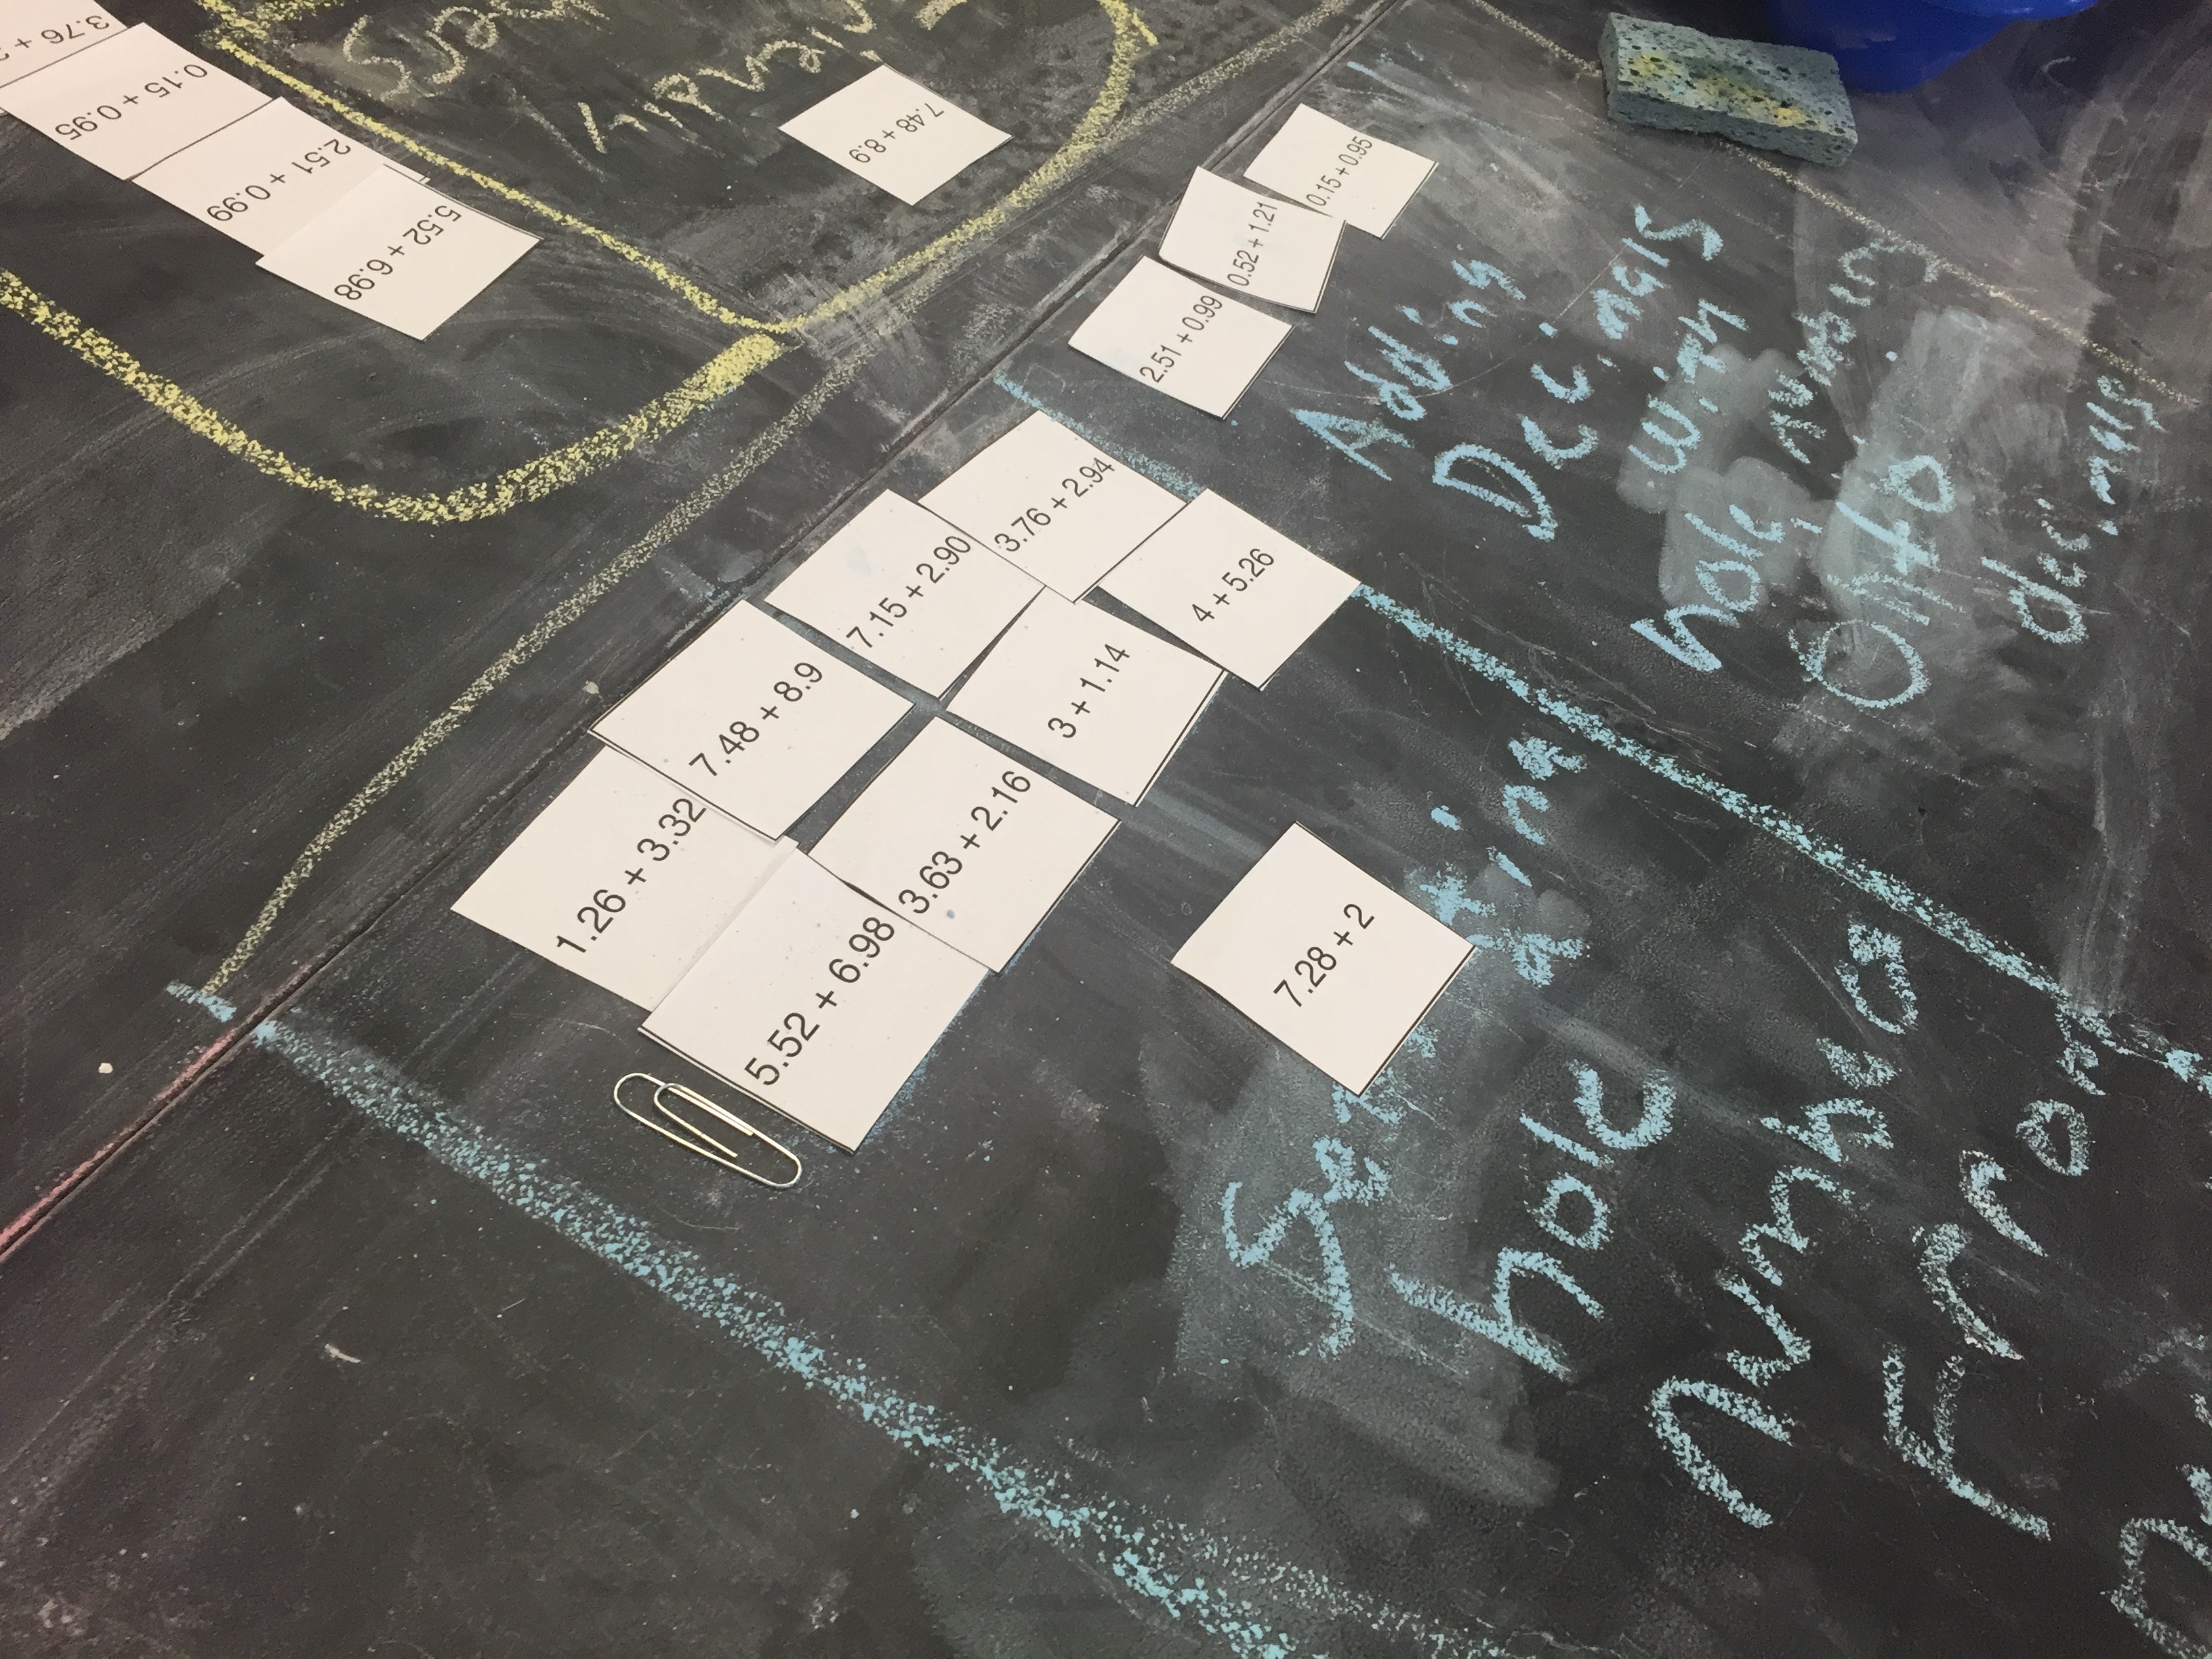 3.76 +
0.15 + 0.95
2.51 + 0.99
5.52 + 6.98
7.48 + 8.9
0.15 + 0.95
0.52 + 1.21
2.51 + 0.99
3.76 + 2.94
7.15 + 2.90
4 + 5.26
7.48 + 8.9
3 + 1.14
1.26 + 3.32
3.63 + 2.16
5.52 + 6.98
7.28 + 2
Adding
Decimals
with
hole
onto
decimals
hole